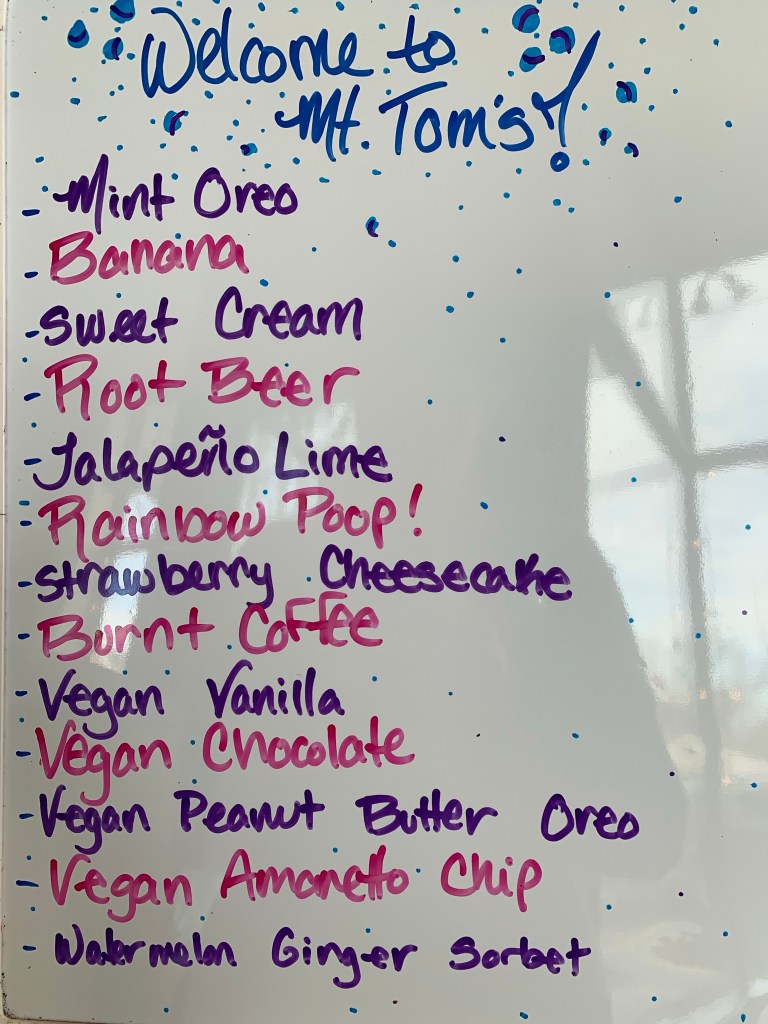 Welcome to
Mt. Tom's!
- Mint Oreo
- Banana
- Sweet Cream
- Root Beer
- Jalapeño Lime
- Rainbow Poop!
- Strawberry Cheesecake
- Burnt Coffee
- Vegan Vanilla
- Vegan Chocolate
- Vegan Peanut Butter Oreo
- Vegan Amaretto Chip
- Watermelon Ginger Sorbet